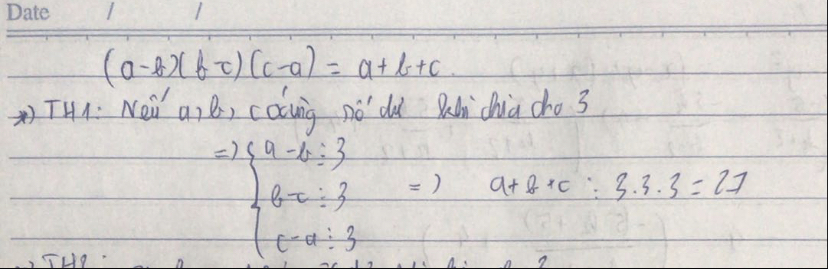 Date / /
(a-b)(b-c)(c-a) = a+b+c.
*) TH1: Nếu a, b, c cùng số dư khi chia cho 3
=> { a-b ⋮ 3
b-c ⋮ 3 => a+b+c ⋮ 3.3.3 = 27
c-a ⋮ 3